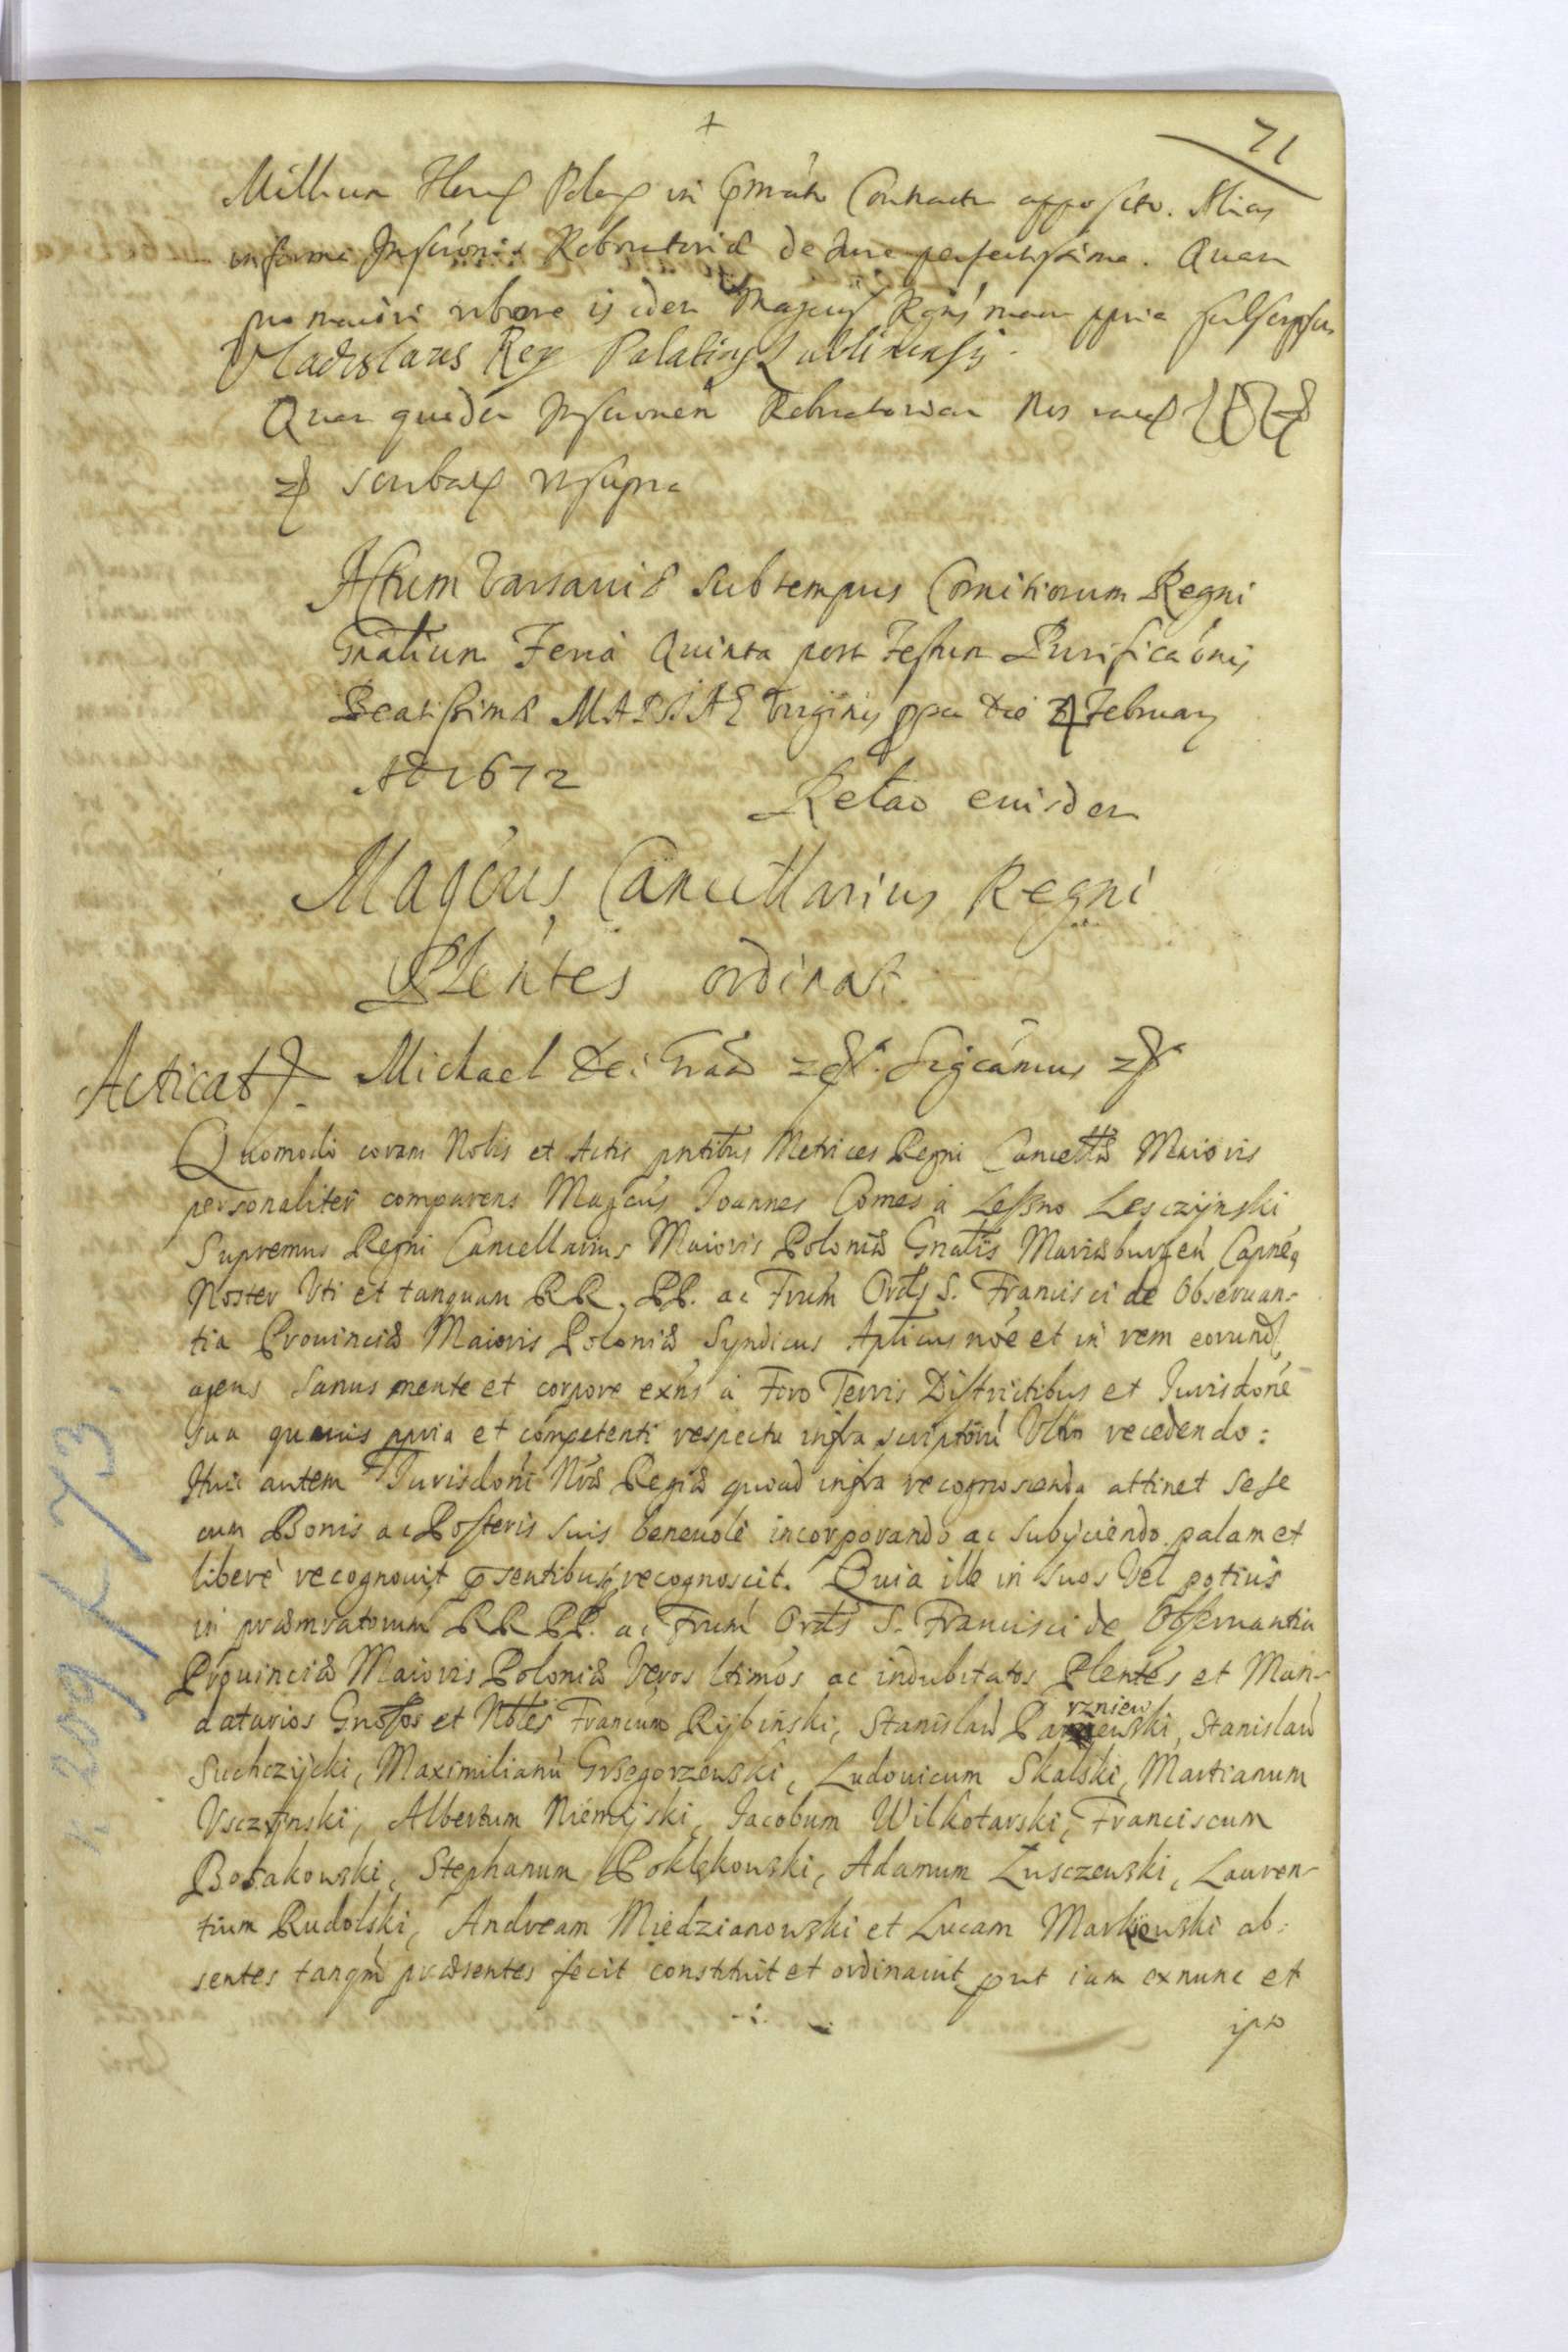 71
Millium flor Polon in Contractu apposito. Alias
in forma Inscriónis Roboratoriæ de Jure perfectissima. Quam
pro maiori robore is idem Magcus Rgns manu ppria subscripsit
Vladislaus Rey Palatinus Lublinensis.
Quam quidem Inscriónem Roboratoriam Nos
scribae ut supra
Actum Varsaviæ sub tempus Comitiorum Regni
Gnãlium Feria Quinta post Festum Purificaónis
Beatissimæ MARIAE Virginis ppa Die 4 February
AD 1672
Relao eiusdem
Magcus Cancellarius Regni
Plentes ordinat.
Acticat Michael Dei Graa Sigcamus
Quomodo coram Nobis et Actis pntibus Metrices Regni Cancellæ Maioris
personaliter comparens Magcus Joannes Comes à Leszno Lesczijnski
Supremus Regni Cancellarius Maioris Poloniæ Gnalis Mariæburgen Capneq
Noster Uti et tanquam RR. PP. ac Frum Ordis S. Francisci de Obseruan-
tia Prouinciæ Maioris Poloniæ Syndicus Aplicus nõe et in rem eorund
agens Sanus mente et corpore exns à Foro Terris Districtibus et Jurisdone
sua quauis ppria et competenti respectu infra scriptorum Ultro recedendo:
Huic autem Jurisdoni Nræ Regiæ quoad infra recognoscenda attinet sese
cum Bonis ac Posteris suis beneuolè incorporando ac subyciendo palam et
liberè recognouit psentibusq recognoscit. Quia ille in suos Vel potius
in præmratorum RR PP. ac Frum Ordis S. Francisci de Obseruantia
Prouinciæ Maioris Poloniæ Veros ltimos ac indubitatos Plentes et Man-
datarios Gnosos et Nobles Francum Rijbinski, Stanislaw Parzniewski, Stanislaw
Suchczijcki, Maximilianu Grzegorzewski, Ludouicum Skalski, Martianum
Usczijnski, Albertum Niemijski, Jacobum Wilkotarski, Franciscum
Borakowski, Stephanum Poklękowski, Adamum Łusczewski, Lauren-
tium Rudolski, Andream Miedzianowski et Lucam Markowski ab-
sentes tanqm præsentes fecit constituit et ordinauit put iam exnunc et
ipso